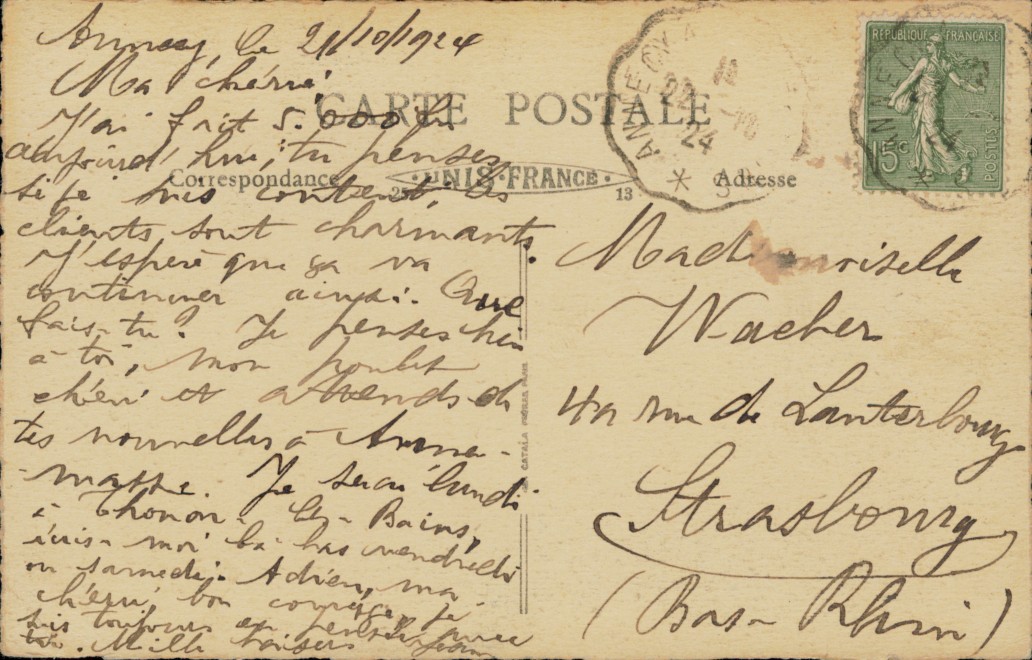 Annecy, le 21/10/1924
Ma chérie
J'ai fait 5.000 fr
aujourd'hui, tu penses
si je suis content, les
clients sont charmants.
J'espere que ça va
continuer ainsi. Que
fais-tu? Je penses bien
à toi, mon poulet
chéri et attends de
tes nouvelles à Anne-
masse. Je serai lundi
à Thonon-les-Bains,
écris-moi là-bas vendredi
ou samedi. Adieu, ma
chérie, bon courage, je
suis toujours en pensée avec
toi. Mille baisers
CARTE POSTALE
Correspondance
UNIS-FRANCE
13
Adresse
CATALA FRÈRES PARIS
ANNECY
22 -10
24
RÉPUBLIQUE FRANÇAISE
15c
POSTES
Mademoiselle
Wacher
4a rue de Lauterbourg
Strasbourg
(Bas-Rhin)